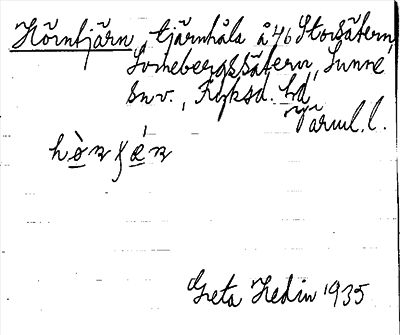 Hörntjärn, tjärnhåla å 46 Storsätern,
Sornebergssätern, Sunne
sn. v., Fryksd. hd
Värml. l.
Greta Hedin 1935